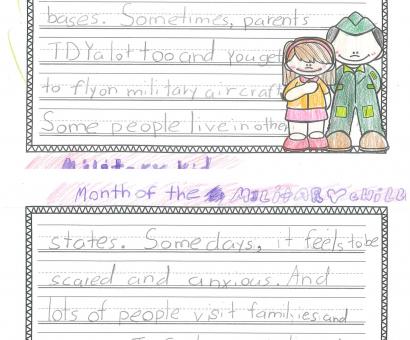 bases. Sometimes, parents
TDY a lot too and you get
to fly on military aircraft
Some people live in other
Military kid
Month of the MILITARY CHILD
states. Some days, it feels to be
scared and anxious. And
lots of people visit families and